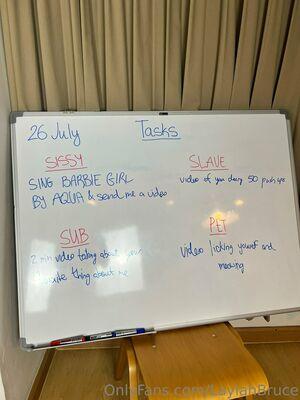 26 July
Tasks
SISSY
SING BARBIE GIRL
BY AQUA & send me a video
SLAVE
video of you doing 50 push ups
SUB
2 min video talking about your
favourite thing about me
PET
Video licking yourself and
meowing
OnlyFans.com/LaylahBruce